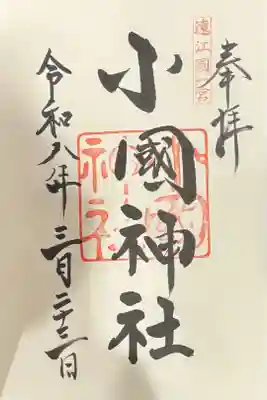 奉拝
遠江國一宮
小國神社
令和八年三月二十三日